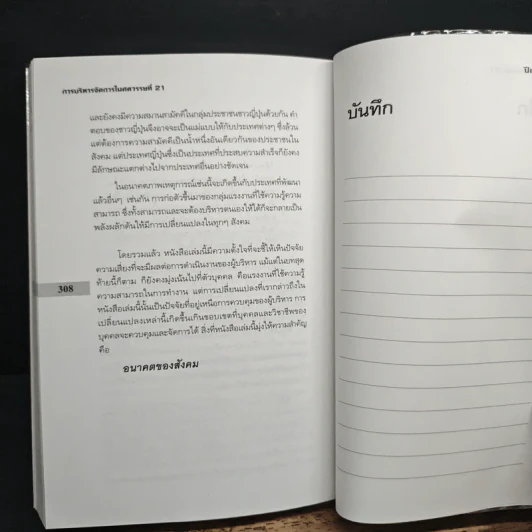 การบริหารจัดการในศตวรรษที่ 21
และยังคงมีความสมานสามัคคีในกลุ่มประชาชนชาวญี่ปุ่นด้วยกัน คำ
ตอบของชาวญี่ปุ่นจึงอาจจะเป็นแม่แบบให้กับประเทศต่างๆ ซึ่งล้วน
แต่ต้องการความสามัคคีเป็นน้ำหนึ่งอันเดียวกันของประชาชนใน
สังคม แต่ประเทศญี่ปุ่นซึ่งเป็นประเทศที่ประสบความสำเร็จก็ยังคง
มีลักษณะแตกต่างไปจากประเทศอื่นอย่างชัดเจน
ในอนาคตภาพเหตุการณ์เช่นนี้จะเกิดขึ้นกับประเทศที่พัฒนา
แล้วอื่นๆ เช่นกัน การก่อตัวขึ้นมาของกลุ่มแรงงานที่ใช้ความรู้ความ
สามารถ ซึ่งทั้งสามารถและจะต้องบริหารตนเองให้ได้ก็จะกลายเป็น
พลังผลักดันให้มีการเปลี่ยนแปลงในทุกๆ สังคม
โดยรวมแล้ว หนังสือเล่มนี้มีความตั้งใจที่จะชี้ให้เห็นปัจจัย
ความเสี่ยงที่จะมีผลต่อการดำเนินงานของผู้บริหาร แม้แต่ในบทสุด
ท้ายนี้ก็ตาม ก็ยังคงมุ่งเน้นไปที่ตัวบุคคล คือแรงงานที่ใช้ความรู้
ความสามารถในการทำงาน แต่การเปลี่ยนแปลงที่เรากล่าวถึงใน
หนังสือเล่มนี้นั้นเป็นปัจจัยที่อยู่เหนือการควบคุมของผู้บริหาร การ
เปลี่ยนแปลงเหล่านี้เกิดขึ้นเกินขอบเขตที่บุคคลและวิชาชีพของ
บุคคลจะควบคุมและจัดการได้ สิ่งที่หนังสือเล่มนี้มุ่งให้ความสำคัญ
คือ
อนาคตของสังคม
308
บันทึก